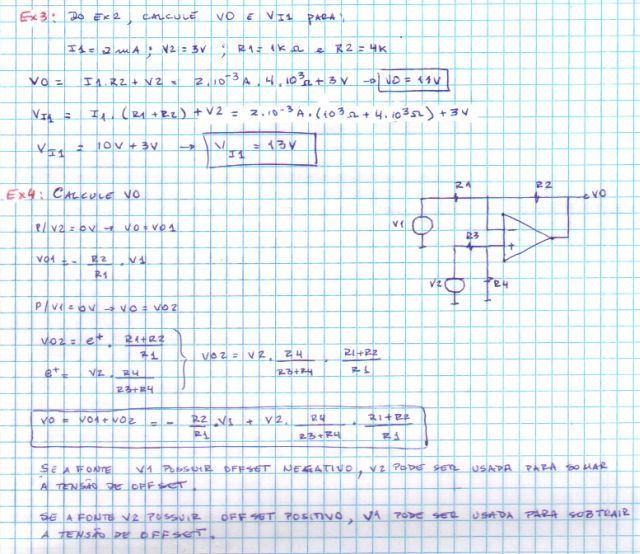 Ex3: DO Ex2, CALCULE VO E VI1 PARA:
I1 = 2mA ; V2 = 3V ; R1 = 1KΩ e R2 = 4K
VO = I1.R2 + V2 = 2.10⁻³A . 4.10³Ω + 3V → VO = 11V
VI1 = I1.(R1+R2) + V2 = 2.10⁻³A.(10³Ω + 4.10³Ω) + 3V
VI1 = 10V + 3V → VI1 = 13V
Ex4: CALCULE VO
P/ V2 = 0V → VO = VO1
VO1 = - R2/R1 . V1
P/ V1 = 0V → VO = VO2
VO2 = e⁺ . R1+R2/R1
e⁺ = V2 . R4/R3+R4
VO2 = V2 . R4/R3+R4 . R1+R2/R1
VO = VO1 + VO2 = - R2/R1 . V1 + V2 . R4/R3+R4 . R1+R2/R1
R1
R2
VO
V1
R3
-
+
V2
R4
SE A FONTE V1 POSSUIR OFFSET NEGATIVO, V2 PODE SER USADA PARA SOMAR
A TENSÃO DE OFFSET.
SE A FONTE V2 POSSUIR OFFSET POSITIVO, V1 PODE SER USADA PARA SUBTRAIR
A TENSÃO DE OFFSET.